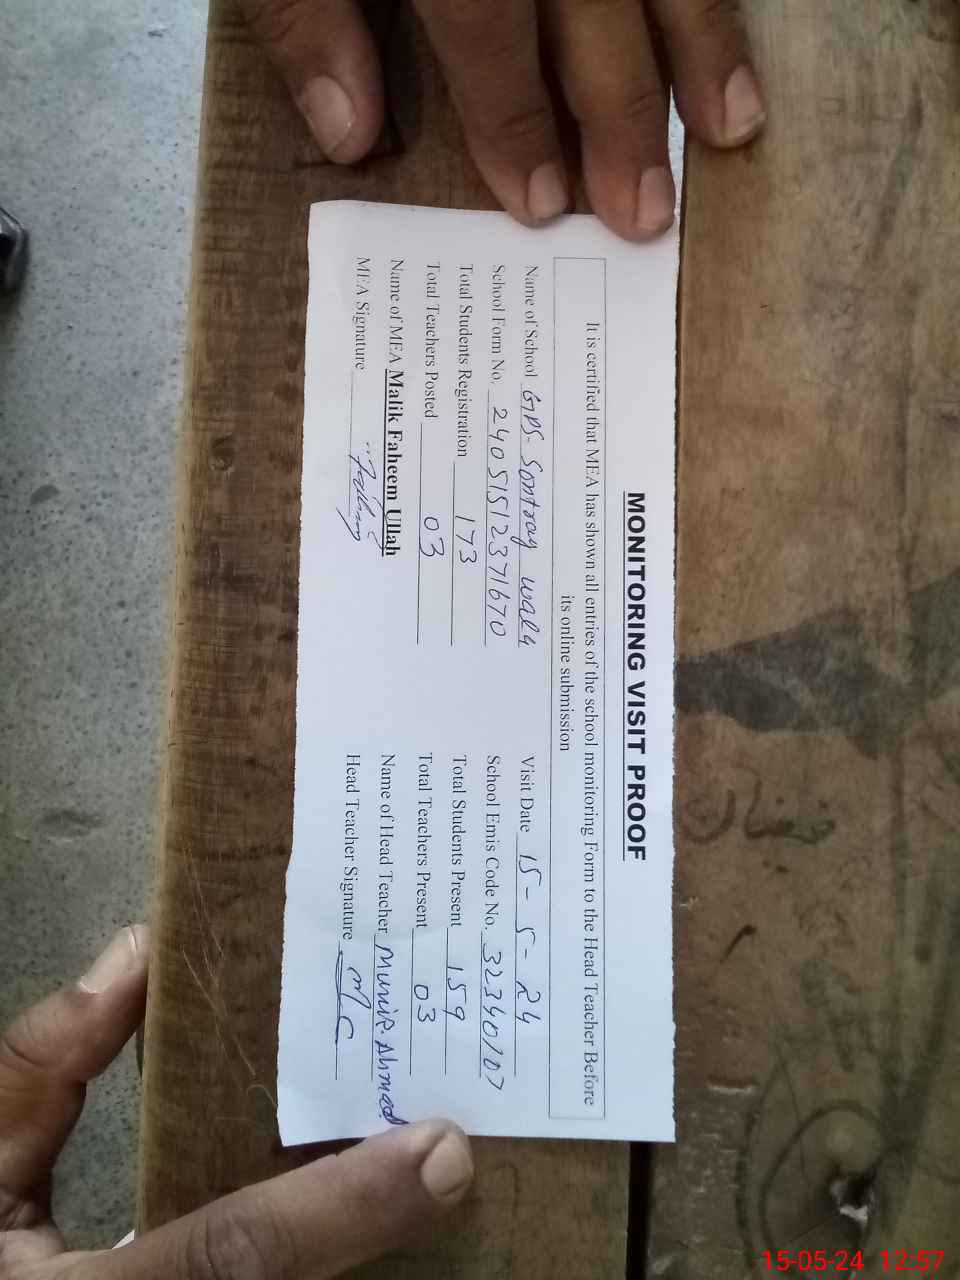 MONITORING VISIT PROOF
It is certified that MEA has shown all entries of the school monitoring Form to the Head Teacher Before
its online submission
Name of School GPS. Sontray wala Visit Date 15-5-24
School Form No. 24051512371670 School Emis Code No. 32340107
Total Students Registration 173 Total Students Present 159
Total Teachers Posted 03 Total Teachers Present 03
Name of MEA Malik Faheem Ullah Name of Head Teacher Munir Ahmad
MEA Signature Head Teacher Signature
15-05-24 12:57